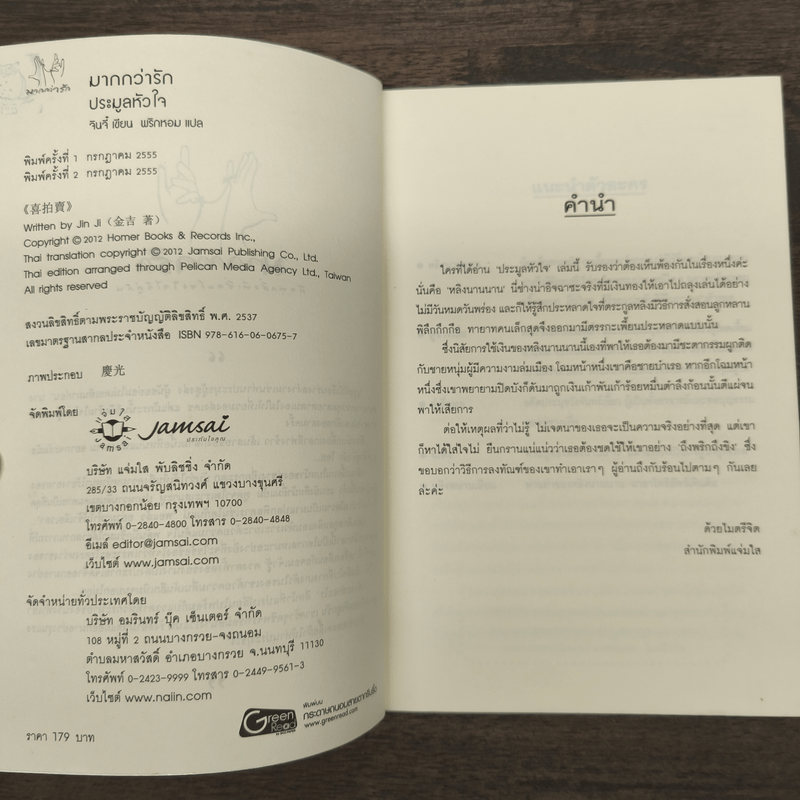 มากกว่ารัก
มากกว่ารัก
ประมูลหัวใจ
จินจี๋ เขียน พริกหอม แปล
พิมพ์ครั้งที่ 1 กรกฎาคม 2555
พิมพ์ครั้งที่ 2 กรกฎาคม 2555
《喜拍賣》
Written by Jin Ji (金吉 著)
Copyright © 2012 Homer Books & Records Inc.,
Thai translation copyright © 2012 Jamsai Publishing Co., Ltd.
Thai edition arranged through Pelican Media Agency Ltd., Taiwan
All rights reserved
สงวนลิขสิทธิ์ตามพระราชบัญญัติลิขสิทธิ์ พ.ศ. 2537
เลขมาตรฐานสากลประจำหนังสือ ISBN 978-616-06-0675-7
ภาพประกอบ 慶光
จัดพิมพ์โดย
แจ่มใส
Jamsai
Jamsai
บริษัท แจ่มใส พับลิชชิ่ง จำกัด
285/33 ถนนจรัญสนิทวงศ์ แขวงบางขุนศรี
เขตบางกอกน้อย กรุงเทพฯ 10700
โทรศัพท์ 0-2840-4800 โทรสาร 0-2840-4848
อีเมล์ editor@jamsai.com
เว็บไซต์ www.jamsai.com
จัดจำหน่ายทั่วประเทศโดย
บริษัท อมรินทร์ บุ๊ค เซ็นเตอร์ จำกัด
108 หมู่ที่ 2 ถนนบางกรวย-จงถนอม
ตำบลมหาสวัสดิ์ อำเภอบางกรวย จ.นนทบุรี 11130
โทรศัพท์ 0-2423-9999 โทรสาร 0-2449-9561-3
เว็บไซต์ www.naiin.com
Green Read
พิมพ์บน
กระดาษถนอมสายตากรีนรี้ด
www.greenread.com
ราคา 179 บาท
คำนำ
ใครที่ได้อ่าน 'ประมูลหัวใจ' เล่มนี้ รับรองว่าต้องเห็นพ้องกันในเรื่องหนึ่งค่ะ
นั่นคือ 'หลิงนานนาน' นี่ช่างน่าอิจฉาซะจริงที่มีเงินทองให้เอาไปถลุงเล่นได้อย่าง
ไม่มีวันหมดวันพร่อง และก็ให้รู้สึกประหลาดใจที่ตระกูลหลิงมีวิธีการสั่งสอนลูกหลาน
พิลึกกึกกือ ทายาทคนเล็กสุดจึงออกมามีตรรกะเพี้ยนประหลาดแบบนั้น
ซึ่งนิสัยการใช้เงินของหลิงนานนานนี้เองที่พาให้เธอต้องมามีชะตากรรมผูกติด
กับชายหนุ่มผู้มีความงามล่มเมือง โฉมหน้าหนึ่งเขาคือชายบำเรอ หากอีกโฉมหน้า
หนึ่งซึ่งเขาพยายามปิดบังก็ดันมาถูกเงินเก้าพันเก้าร้อยหมื่นตำลึงก้อนนั้นตีแผ่จน
พาให้เสียการ
ต่อให้เหตุผลที่ว่าไม่รู้ ไม่เจตนาของเธอจะเป็นความจริงอย่างที่สุด แต่เขา
ก็หาได้ใส่ใจไม่ ยืนกรานแน่แน่วว่าเธอต้องชดใช้ให้เขาอย่าง 'ถึงพริกถึงขิง' ซึ่ง
ขอบอกว่าวิธีการลงทัณฑ์ของเขาทำเอาเราๆ ผู้อ่านถึงกับร้อนไปตามๆ กันเลย
ล่ะค่ะ
ด้วยไมตรีจิต
สำนักพิมพ์แจ่มใส